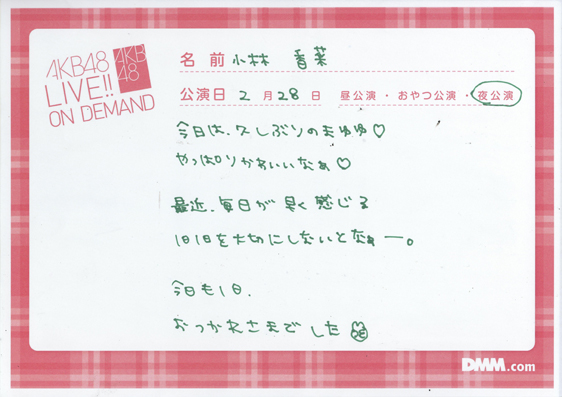 AKB48
LIVE!!
ON DEMAND
AKB
48
名前 小林 香菜
公演日 2月28日 昼公演・おやつ公演・夜公演
今日は、久しぶりのまゆゆ♡
やっぱりかわいいなぁ♡
最近、毎日が早く感じる
1日1日を大切にしないとなぁー。
今日も1日、
おつかれさまでした
DMM.com